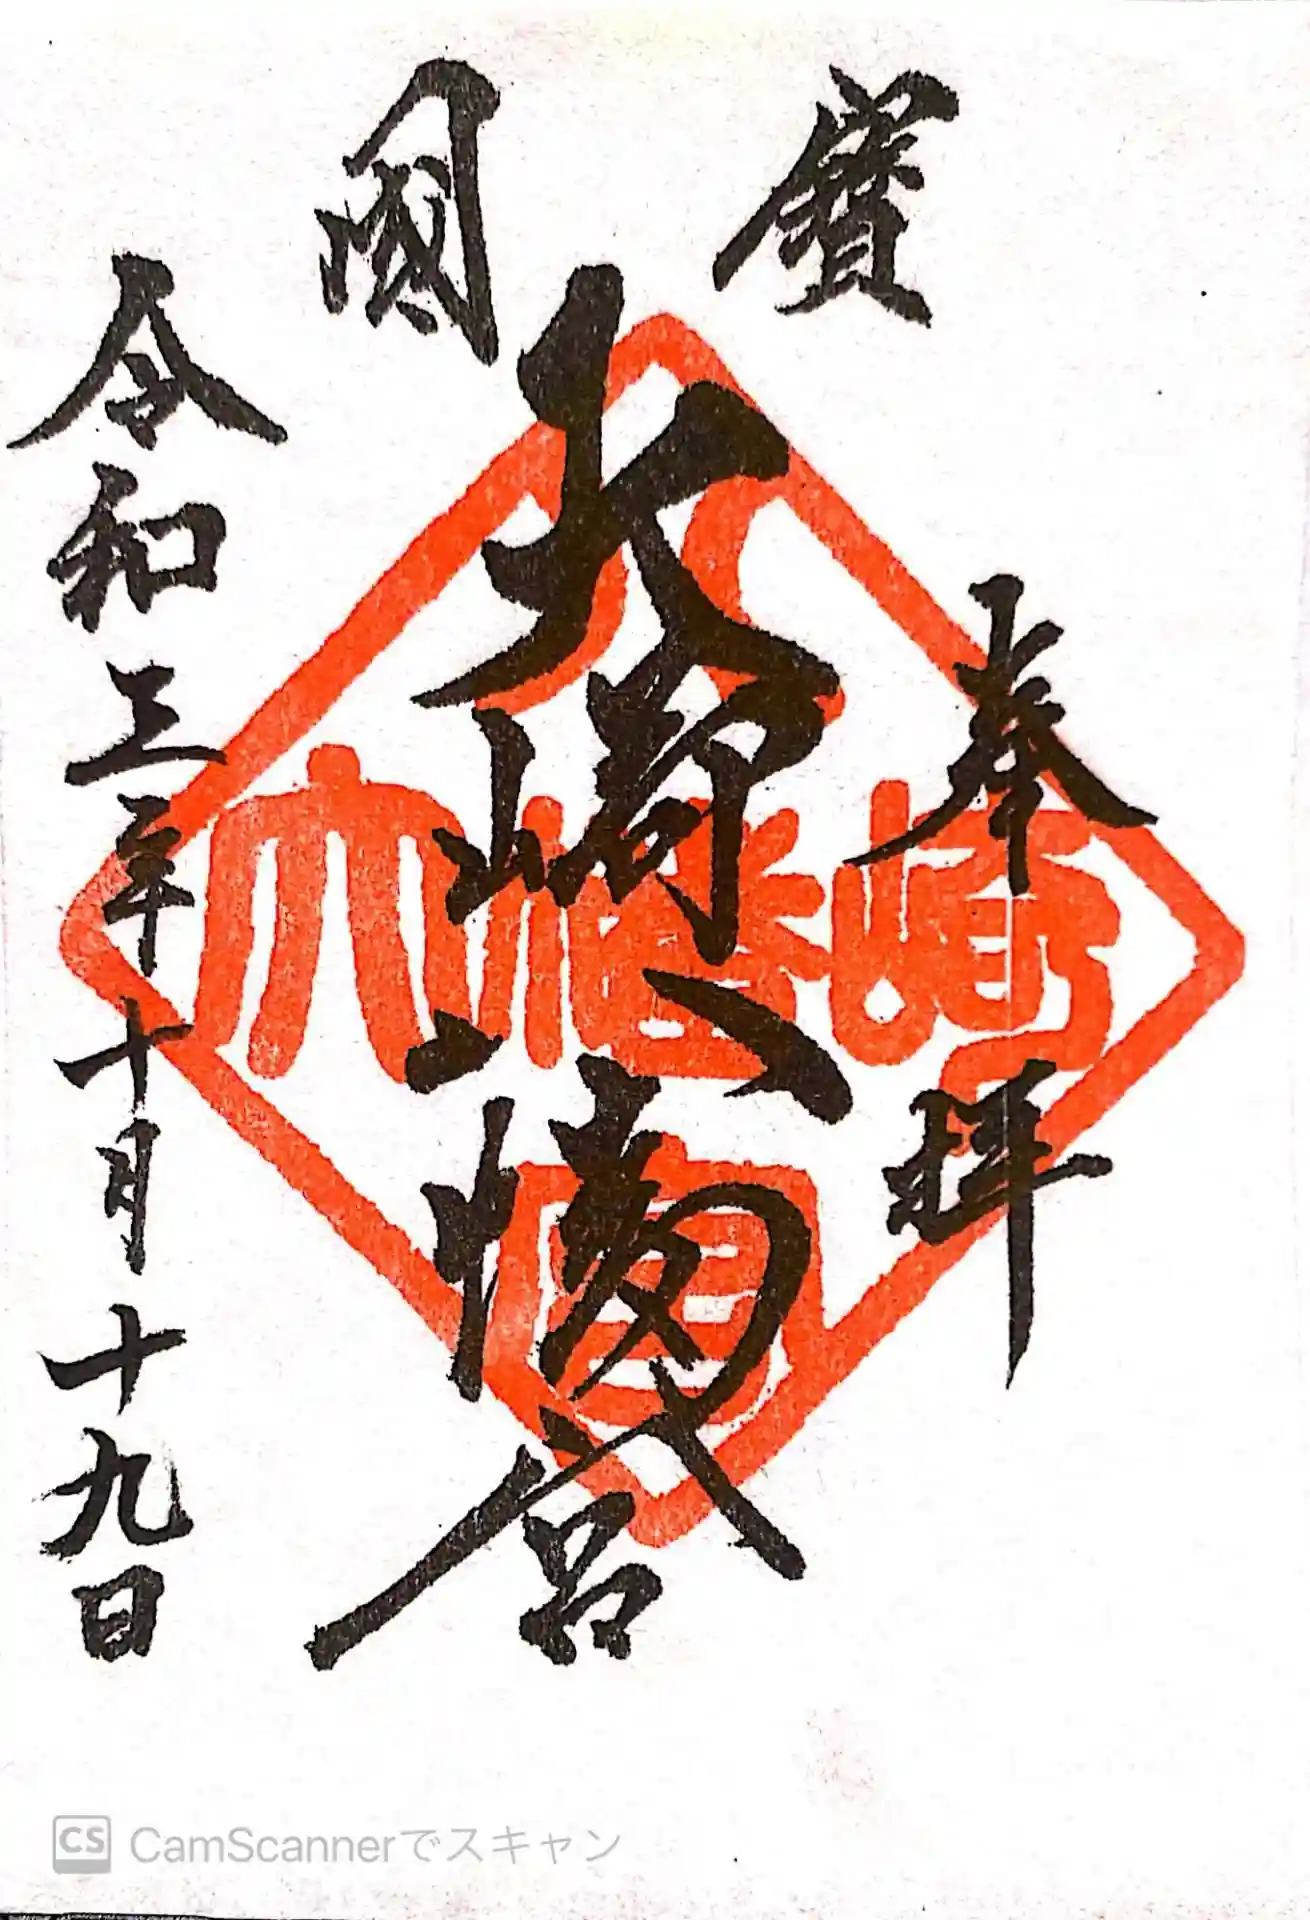 寳國
奉拝
大崎八幡宮
令和三年十月十九日
大崎八幡宮
CS CamScannerでスキャン